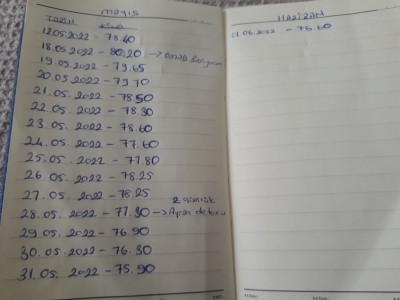 MAYIS
TARİH KİLO
12.05.2022 - 78.40
18.05.2022 - 80.20 →
19.05.2022 - 79.65
20.05.2022 - 79.70
21.05.2022 - 78.50
22.05.2022 - 78.30
23.05.2022 - 78.60
24.05.2022 - 77.60
25.05.2022 - 77.80
26.05.2022 - 78.25
27.05.2022 - 78.25
2 günlük
28.05.2022 - 77.30 → Ayran detoksu
29.05.2022 - 76.90
30.05.2022 - 76.30
31.05.2022 - 75.90
HAZİRAN
01.06.2022 - 75.60